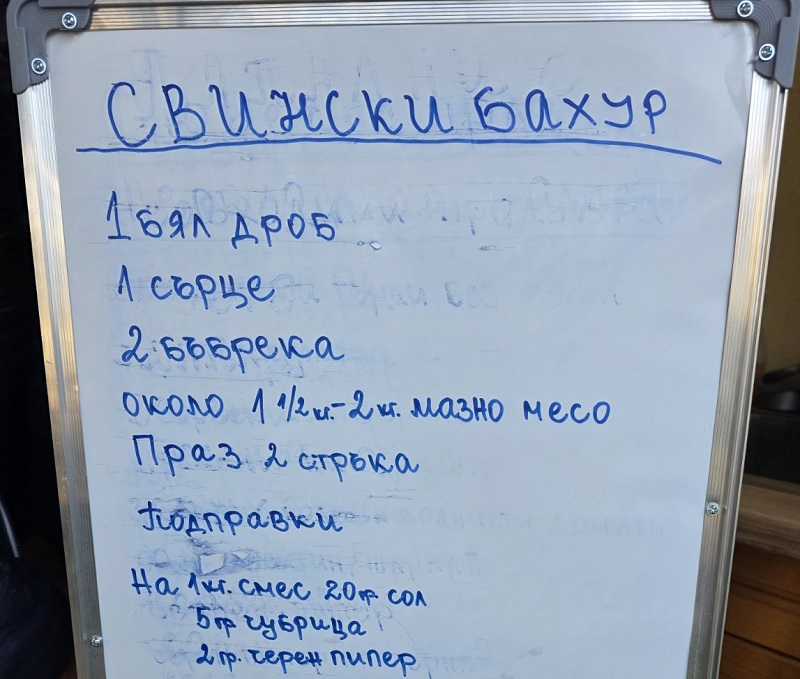 СВИНСКИ БАХУР
1 БЯЛ ДРОБ
1 сърце
2 бъбрека
около 1 1/2 кг. - 2 кг. мазно месо
Праз 2 стръка
Подправки
На 1 кг. смес 20 гр сол
5 гр чубрица
2 гр. черен пипер